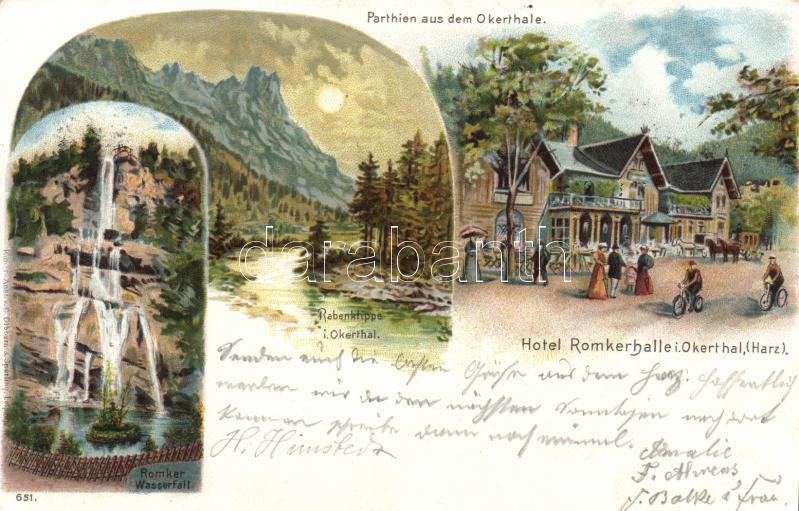 Parthien aus dem Okerthale.
Rabenklippe
i. Okerthal.
Hotel Romkerhalle i. Okerthal, (Harz).
Romker
Wasserfall
651.
darabanth
Senden euch die ersten Grüße aus dem Harz. Hoffentlich
werden wir in den nächsten Sonntagen nach dort
kommen schreibe dann noch einmal.
H. Himstedt
Amalie
F. Ahrens
J. Balke u Frau.